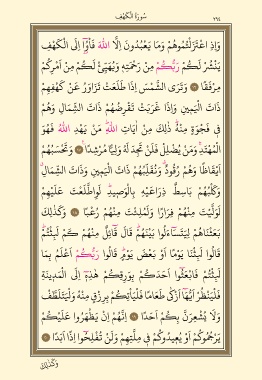 سُورَةُ الْكَهْفِ
٢٩٤
وَاِذِ اعْتَزَلْتُمُوهُمْ وَمَا يَعْبُدُونَ اِلَّا اللّٰهَ فَأْوُٓا اِلَى الْكَهْفِ
يَنْشُرْ لَكُمْ رَبُّكُمْ مِنْ رَحْمَتِهٖ وَيُهَيِّئْ لَكُمْ مِنْ اَمْرِكُمْ
مِرْفَقًا ﴿١٦﴾ وَتَرَى الشَّمْسَ اِذَا طَلَعَتْ تَزَاوَرُ عَنْ كَهْفِهِمْ
ذَاتَ الْيَمٖينِ وَاِذَا غَرَبَتْ تَقْرِضُهُمْ ذَاتَ الشِّمَالِ وَهُمْ
فٖي فَجْوَةٍ مِنْهُ ذٰلِكَ مِنْ اٰيَاتِ اللّٰهِ مَنْ يَهْدِ اللّٰهُ فَهُوَ
الْمُهْتَدِ وَمَنْ يُضْلِلْ فَلَنْ تَجِدَ لَهُ وَلِيًّا مُرْشِدًا ﴿١٧﴾ وَتَحْسَبُهُمْ
اَيْقَاظًا وَهُمْ رُقُودٌ وَنُقَلِّبُهُمْ ذَاتَ الْيَمٖينِ وَذَاتَ الشِّمَالِ
وَكَلْبُهُمْ بَاسِطٌ ذِرَاعَيْهِ بِالْوَصٖيدِ لَوِ اطَّلَعْتَ عَلَيْهِمْ
لَوَلَّيْتَ مِنْهُمْ فِرَارًا وَلَمُلِئْتَ مِنْهُمْ رُعْبًا ﴿١٨﴾ وَكَذٰلِكَ
بَعَثْنَاهُمْ لِيَتَسَٓاءَلُوا بَيْنَهُمْ قَالَ قَٓائِلٌ مِنْهُمْ كَمْ لَبِثْتُمْ
قَالُوا لَبِثْنَا يَوْمًا اَوْ بَعْضَ يَوْمٍ قَالُوا رَبُّكُمْ اَعْلَمُ بِمَا
لَبِثْتُمْ فَابْعَثُٓوا اَحَدَكُمْ بِوَرِقِكُمْ هٰذِهٖٓ اِلَى الْمَدٖينَةِ
فَلْيَنْظُرْ اَيُّهَٓا اَزْكٰى طَعَامًا فَلْيَأْتِكُمْ بِرِزْقٍ مِنْهُ وَلْيَتَلَطَّفْ
وَلَا يُشْعِرَنَّ بِكُمْ اَحَدًا ﴿١٩﴾ اِنَّهُمْ اِنْ يَظْهَرُوا عَلَيْكُمْ
يَرْجُمُوكُمْ اَوْ يُعٖيدُوكُمْ فٖي مِلَّتِهِمْ وَلَنْ تُفْلِحُٓوا اِذًا اَبَدًا ﴿٢٠﴾
وَكَذٰلِكَ